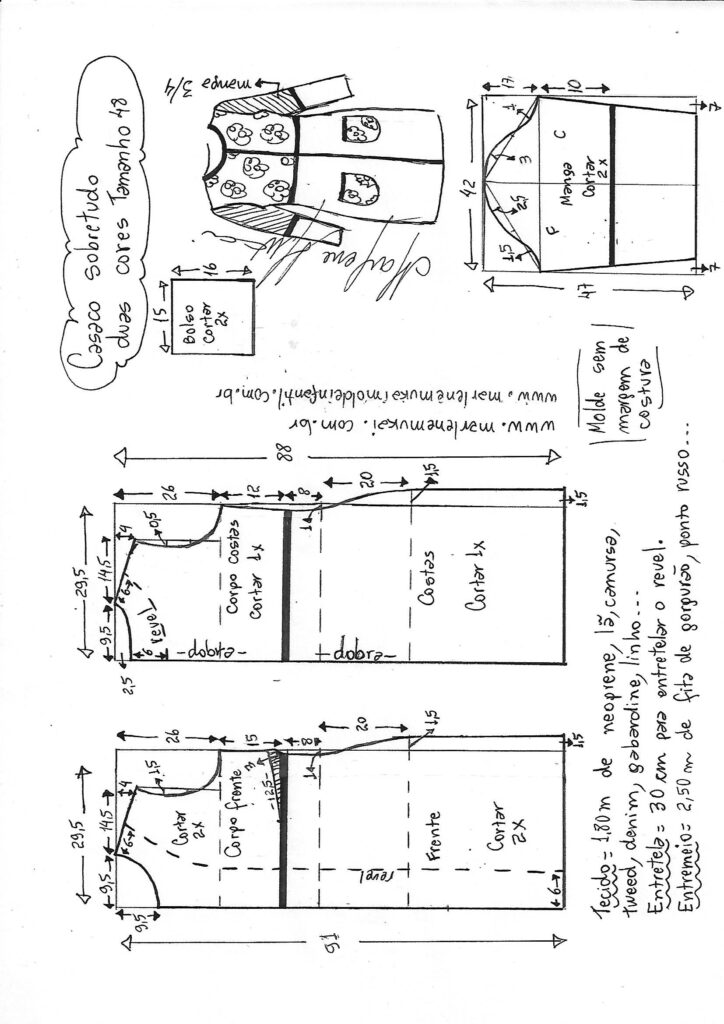 Casaco Sobretudo
duas cores Tamanho 48
manga 3/4
Marlene Mukai
16
15
Bolso
Cortar
2x
17
10
7
1
3
2,5
1,5
42
C
F
Manga
Cortar
2x
47
7
www.marlenemukaimoldeinfantil.com.br
www.marlenemukai.com.br
Molde sem
margem de
costura
88
26
12
8
20
1,5
1,5
1
29,5
14,5
9,5
4
0,5
6
revel
6
2,5
Corpo Costas
Cortar 1x
-dobra-
-dobra-
Costas
Cortar 1x
26
15
8
20
1,5
1,5
1
29,5
14,5
9,5
9,5
4
1,5
6
Cortar
2x
Corpo frente
3
-12,5-
revel
Frente
Cortar
2X
6
91
Tecido = 1,80m de neoprene, lã, camursa,
tweed, denim, gabardine, linho...
Entretela = 30 cm para entretelar o revel.
Entremeio = 2,50 m de fita de gorgurão, ponto russo...